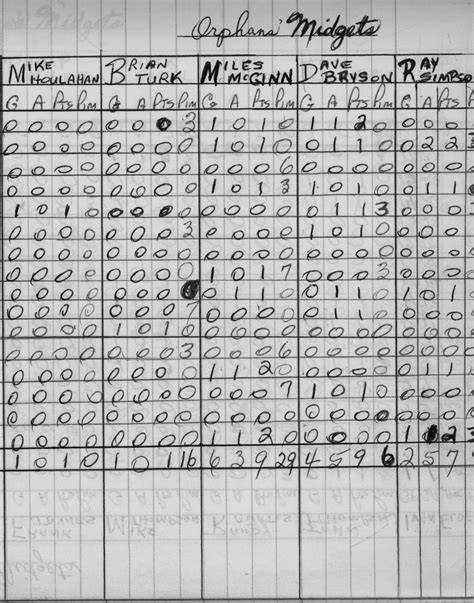 Orphans' Midgets
MIKE HOULAHAN BRIAN TURK MILES McGINN DAVE BRYSON RAY SIMPSO
G A Pts Pim G A Pts Pim G A Pts Pim G A Pts Pim G A Pts
0 0 0 0 0 0 0 3 1 0 1 0 1 1 2 0 0 0 0
0 0 0 0 0 0 0 0 1 0 1 0 0 1 1 0 0 2 2
0 0 0 0 0 0 0 0 0 0 0 6 0 0 0 0 0 0 0
0 0 0 0 0 0 0 0 1 0 1 3 1 0 1 0 0 1 1
1 0 1 0 0 0 0 0 0 0 0 0 0 1 1 3 0 0 0
0 0 0 0 0 0 0 3 0 0 0 0 1 0 1 0 0 0 0
0 0 0 0 0 0 0 0 0 0 0 0 0 0 0 0 0 0 0
0 0 0 0 0 0 0 0 1 0 1 7 0 0 0 3 0 0 0
0 0 0 0 0 0 0 0 1 1 0 0 1 1 0 1 0 1
0 0 0 0 0 0 0 7 0 0 0 0 0 1 1 0 0 0 0
0 0 0 0 1 0 1 0 0 0 0 0 0 0 0 0 0 0 0
0 0 0 0 0 0 0 3 0 0 0 6 0 0 0 0 0 0 0
0 0 0 0 0 0 0 0 1 1 2 0 0 0 0 0 0 1 1
0 0 0 0 0 0 0 0 0 0 0 7 1 0 1 0 0 0 0
0 0 0 0 0 0 0 0 0 0 0 0 0 0 0 0 0 0 0
0 0 0 0 0 0 0 0 1 1 2 0 0 0 0 0 1 1 2 3
1 0 1 0 1 0 1 16 6 3 9 29 4 5 9 6 2 5 7